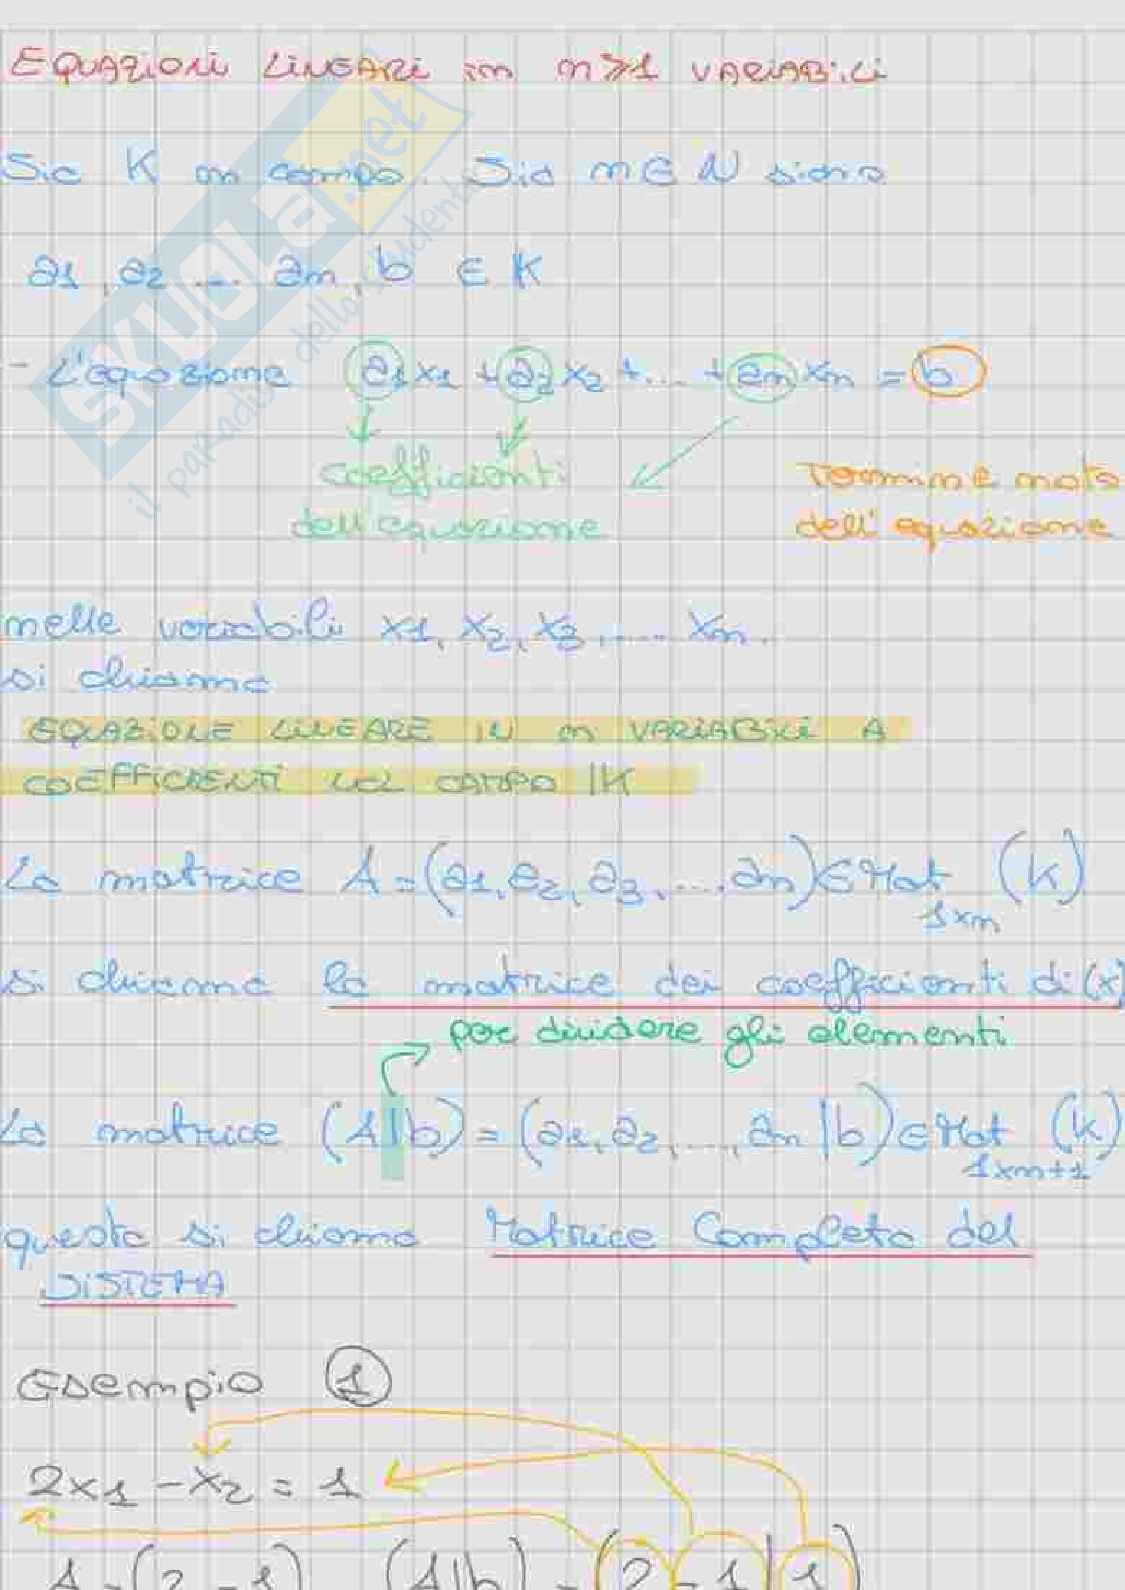 EQUAZIONI LINEARI in n≥1 VARIABILI
Sia K un campo. Sia n∈N siano
a1, a2 .... an, b ∈ K
- L'equazione a1x1 + a2x2 + ... + anxn = b
coefficienti dell'equazione
Termine noto dell'equazione
nelle variabili x1, x2, x3, ..... xn.
si chiama
EQUAZIONE LINEARE IN n VARIABILI A
COEFFICIENTI NEL CAMPO IK
La matrice A = (a1, a2, a3, ..., an) ∈ Mat 1xn (K)
si chiama la matrice dei coefficienti di (x)
per dividere gli elementi
La matrice (A|b) = (a1, a2, ..., an | b) ∈ Mat 1xn+1 (K)
questa si chiama Matrice Completa del
SISTEMA
Esempio 1
2x1 - x2 = 1
A = (2 -1) (A|b) = (2 -1 | 1)
SKUOLA.net
il paradiso dello studente